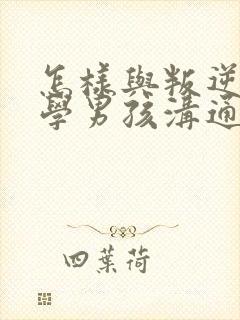 怎樣與叛逆
學男孩溝通
四葉荷